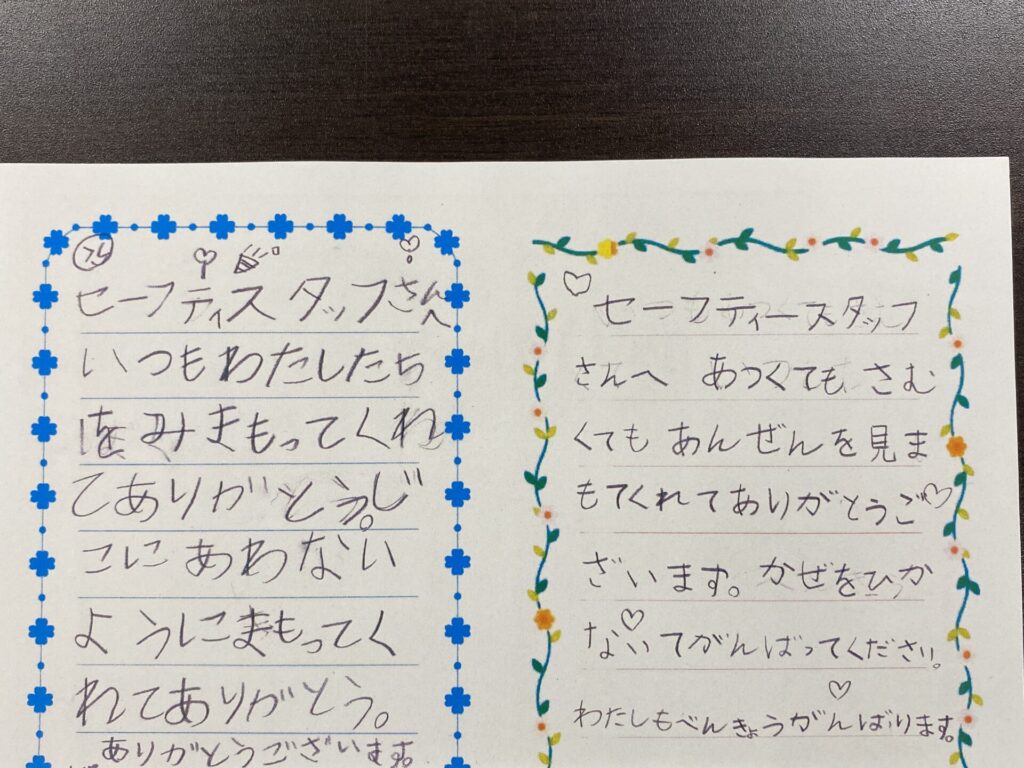 セーフティスタッフさんへ
いつもわたしたち
をみまもってくれ
てありがとう。じ
こにあわない
ようにまもってく
れてありがとう。
ありがとうございます。
セーフティースタッフ
さんへ あつくても さむ
くても あんぜんを見ま
もてくれてありがとうご
ざいます。かぜをひか
ないてがんばってください。
わたしもべんきょうがんばります。